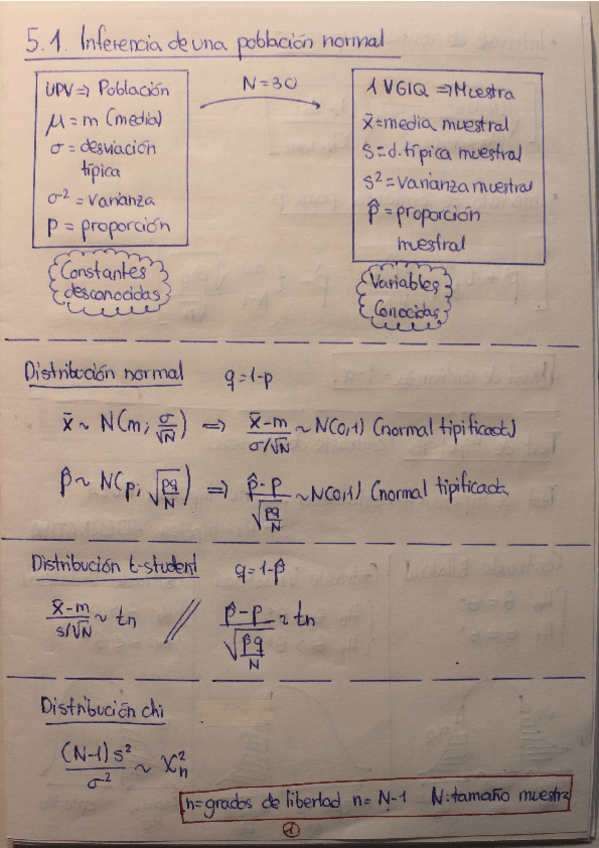 5.1. Inferencia de una población normal
UPV ⇒ Población
μ = m (media)
σ = desviación
típica
σ² = varianza
p = proporción
N=30
1 VGIQ ⇒ Muestra
x̄ = media muestral
s = d. típica muestral
s² = varianza muestral
p̂ = proporción
muestral
Constantes
desconocidas
Variables
Conocidas
Distribución normal q = 1-p
x̄ ~ N(m; σ/√N) ⇒ (x̄-m)/(σ/√N) ~ N(0,1) (normal tipificada)
p̂ ~ N(p; √(pq/N)) ⇒ (p̂-p)/√(pq/N) ~ N(0,1) (normal tipificada
Distribución t-student q = 1-p̂
(x̄-m)/(s/√N) ~ tn // (p̂-p)/√(p̂q/N) ~ tn
Distribución chi
(N-1)s²/σ² ~ χ²n
n=grados de libertad n= N-1 N:tamaño muestra
1